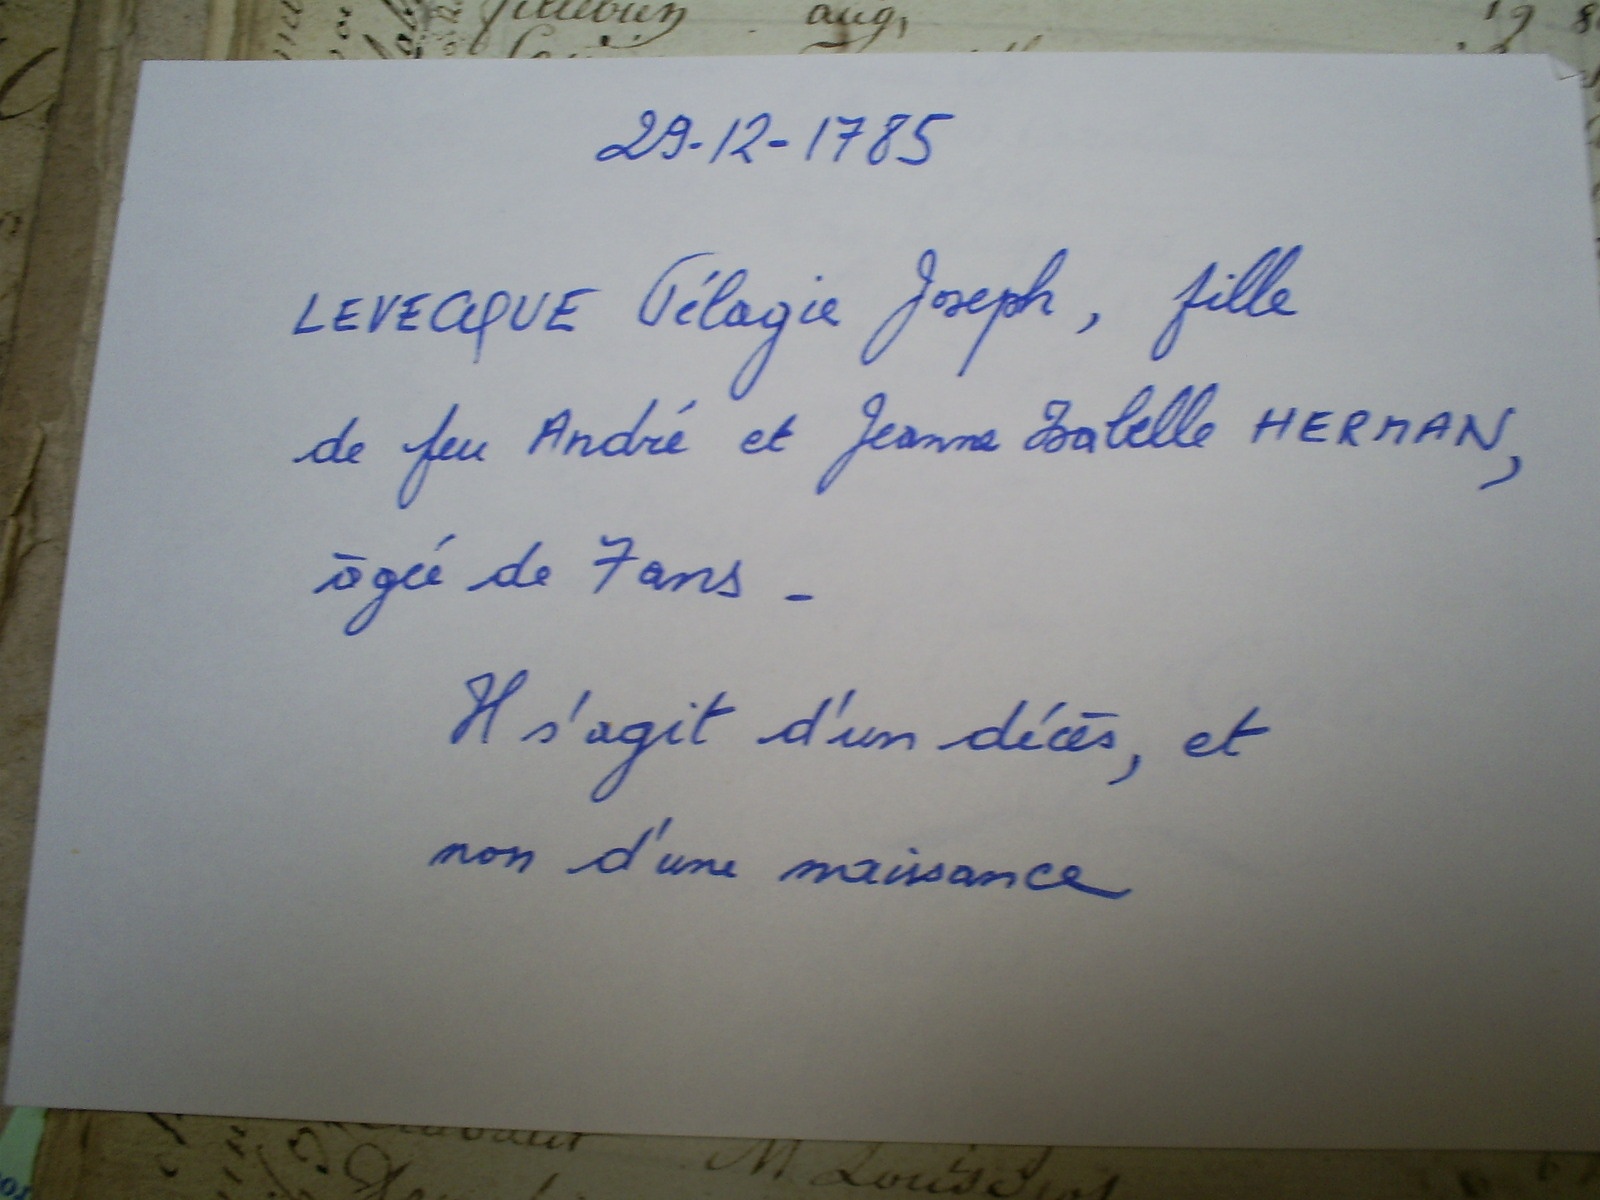 aug,
19
29-12-1785
LEVECQUE Pélagie Joseph, fille
de feu André et Jeanne Isabelle HERMAN,
âgée de 7 ans -
Il s'agit d'un décès, et
non d'une naissance
M Louis